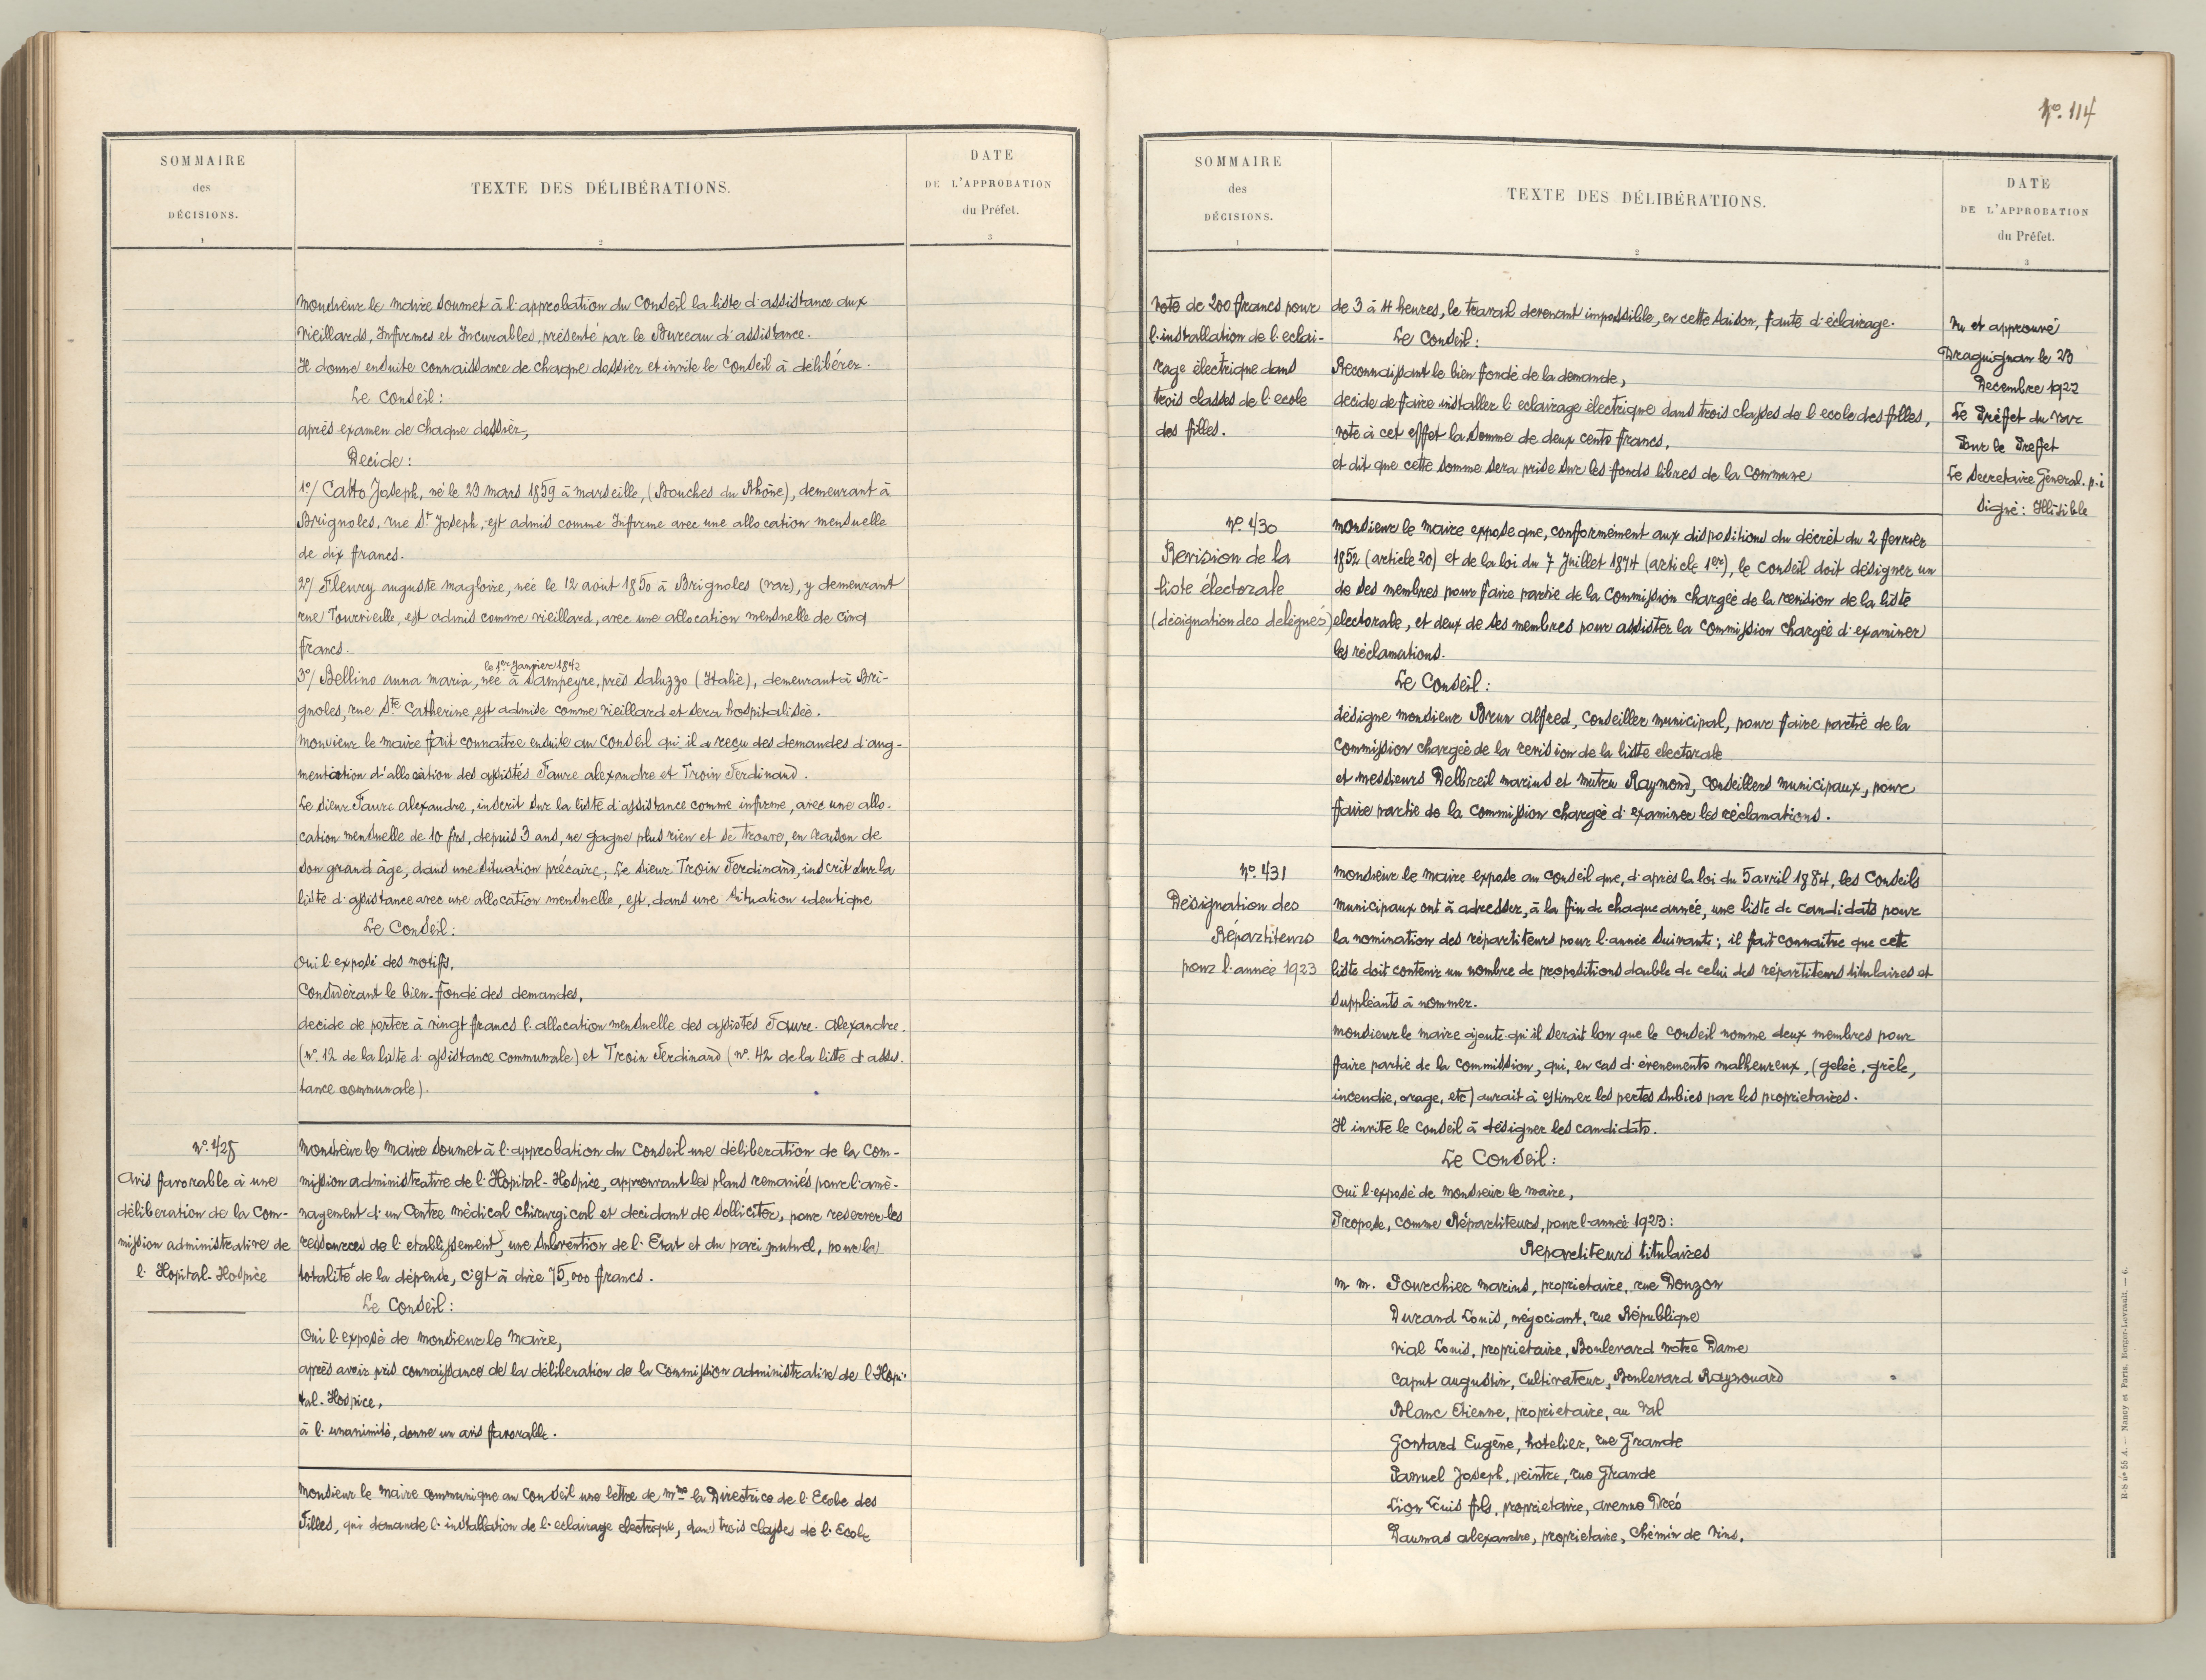 SOMMAIRE
des
DÉCISIONS.
1
TEXTE DES DÉLIBÉRATIONS.
2
DATE
DE L'APPROBATION
du Préfet.
3
Monsieur le Maire soumet à l'approbation du Conseil la liste d'assistance aux
Vieillards, Infirmes et Incurables, présenté par le Bureau d'assistance.
Il donne ensuite connaissance de chaque dossier et invite le Conseil à délibérer.
Le Conseil :
après examen de chaque dossier,
Decide :
1º/ Catto Joseph, né le 23 mars 1859 à marseille, (Bouches du Rhône), demeurant à
Brignoles, rue St Joseph, est admis comme Infirme avec une allocation mensuelle
de dix francs.
2º/ Fleury auguste magloire, née le 12 août 1850 à Brignoles (Var), y demeurant
rue Tourvieille, est admis comme vieillard, avec une allocation mensuelle de cinq
francs.
le 1er Janvier 1842
3º/ Bellino anna maria, née à Sampeyre, près Saluzzo (Italie), demeurant à Bri-
gnoles, rue Ste Catherine, est admise comme vieillard et sera hospitalisée.
Monsieur le maire fait connaitre ensuite au Conseil qu'il a reçu des demandes d'aug-
mentation d'allocation des assistés Faure alexandre et Troin Ferdinand.
Le sieur Faure alexandre, inscrit sur la liste d'assistance comme infirme, avec une allo-
cation mensuelle de 10 frs, depuis 3 ans, ne gagne plus rien et se trouve, en raison de
son grand âge, dans une situation précaire; Le sieur Troin Ferdinand, inscrit sur la
liste d'assistance avec une allocation mensuelle, est, dans une situation identique
Le Conseil :
Oui l'exposé des motifs,
Considérant le bien-fondé des demandes,
decide de porter à vingt francs l'allocation mensuelle des assistés Faure-Alexandre.
(nº 12 de la liste d'assistance communale) et Troin Ferdinand (nº 42 de la liste d'assis-
tance communale).
Nº 428
Avis favorable à une
déliberation de la Com-
mission administrative de
l'Hopital-Hospice
Monsieur le Maire soumet à l'approbation du Conseil une déliberation de la Com-
mission administrative de l'Hopital-Hospice, approuvant les plans remaniés pour l'amé-
nagement d'un Centre médical chirurgical et decidant de solliciter, pour reserver les
ressources de l'etablissement, une subvention de l'Etat et du pari mutuel, pour la
totalité de la dépense, c'est à dire 75,000 francs.
Le Conseil :
Oui l'exposé de monsieur le Maire,
après avoir pris connaissance de la déliberation de la Commission administrative de l'Hopi-
tal-Hospice,
à l'unanimité, donne un avis favorable.
Monsieur le Maire communique au Conseil une lettre de Mme la Directrice de l'Ecole des
Filles, qui demande l'installation de l'eclairage electrique, dans trois classes de l'Ecole
Nº. 114
SOMMAIRE
des
DÉCISIONS.
1
TEXTE DES DÉLIBÉRATIONS.
2
DATE
DE L'APPROBATION
du Préfet.
3
Vote de 200 francs pour
l'installation de l'eclai-
rage électrique dans
trois classes de l'ecole
des filles.
de 3 à 4 heures, le travail devenant impossible, en cette saison, faute d'éclairage.
Le Conseil :
Reconnaissant le bien fondé de la demande,
decide de faire installer l'eclairage électrique dans trois classes de l'ecole des filles,
vote à cet effet la somme de deux cents francs,
et dit que cette somme sera prise sur les fonds libres de la Commune
Vu et approuvé
Draguignan le 23
Decembre 1922
Le Préfet du Var
Pour le Preffet
Le Secretaire General. p.i
Signé : Illisible
Nº 430
Revision de la
liste électorale
(désignation des delégués)
Monsieur le Maire expose que, conformément aux dispositions du décrèt du 2 fevrier
1852 (article 20) et de la loi du 7 Juillet 1874 (article 1er), le Conseil doit désigner un
de ses membres pour faire partie de la Commission chargée de la revision de la liste
electorale, et deux de ses membres pour assister la Commission chargée d'examiner
les réclamations.
Le Conseil :
désigne monsieur Brun Alfred, Conseiller municipal, pour faire partie de la
Commission chargée de la revision de la liste electorale
et messieurs Delbreil marius et Mutru Raymond, Conseillers municipaux, pour
faire partie de la Commission chargée d'examiner les réclamations.
Nº 431
Désignation des
Répartiteurs
pour l'année 1923
Monsieur le Maire expose au Conseil que, d'après la loi du 5 avril 1884, les Conseils
municipaux ont à adresser, à la fin de chaque année, une liste de candidats pour
la nomination des répartiteurs pour l'année suivante; il fait connaitre que cette
liste doit contenir un nombre de propositions double de celui des répartiteurs titulaires et
suppléants à nommer.
Monsieur le maire ajoute qu'il serait bon que le Conseil nomme deux membres pour
faire partie de la Commission, qui, en cas d'évenements malheureux, (gelée, grêle,
incendie, orage, etc) aurait à estimer les pertes subies par les proprietaires.
Il invite le Conseil à désigner les candidats.
Le Conseil :
Oui l'exposé de monsieur le maire,
Propose, comme Répartiteurs, pour l'année 1923 :
Repartiteurs titulaires
M.M. Pourchier marius, proprietaire, rue Douzon
Durand Louis, négociant, rue République
Vial Louis, proprietaire, Boulevard notre Dame
Caput augustin, Cultivateur, Boulevard Raynouard
Blanc Etienne, proprietaire, au Val
Gontard Eugène, hotelier, rue Grande
Panuel Joseph, peintre, rue Grande
Lion Louis fils, proprietaire, avenue Dréo
Daumas alexandre, proprietaire, Chemin de Vins.
R-S nº 55 A. — Nancy et Paris. Berger-Levrault. — 6.